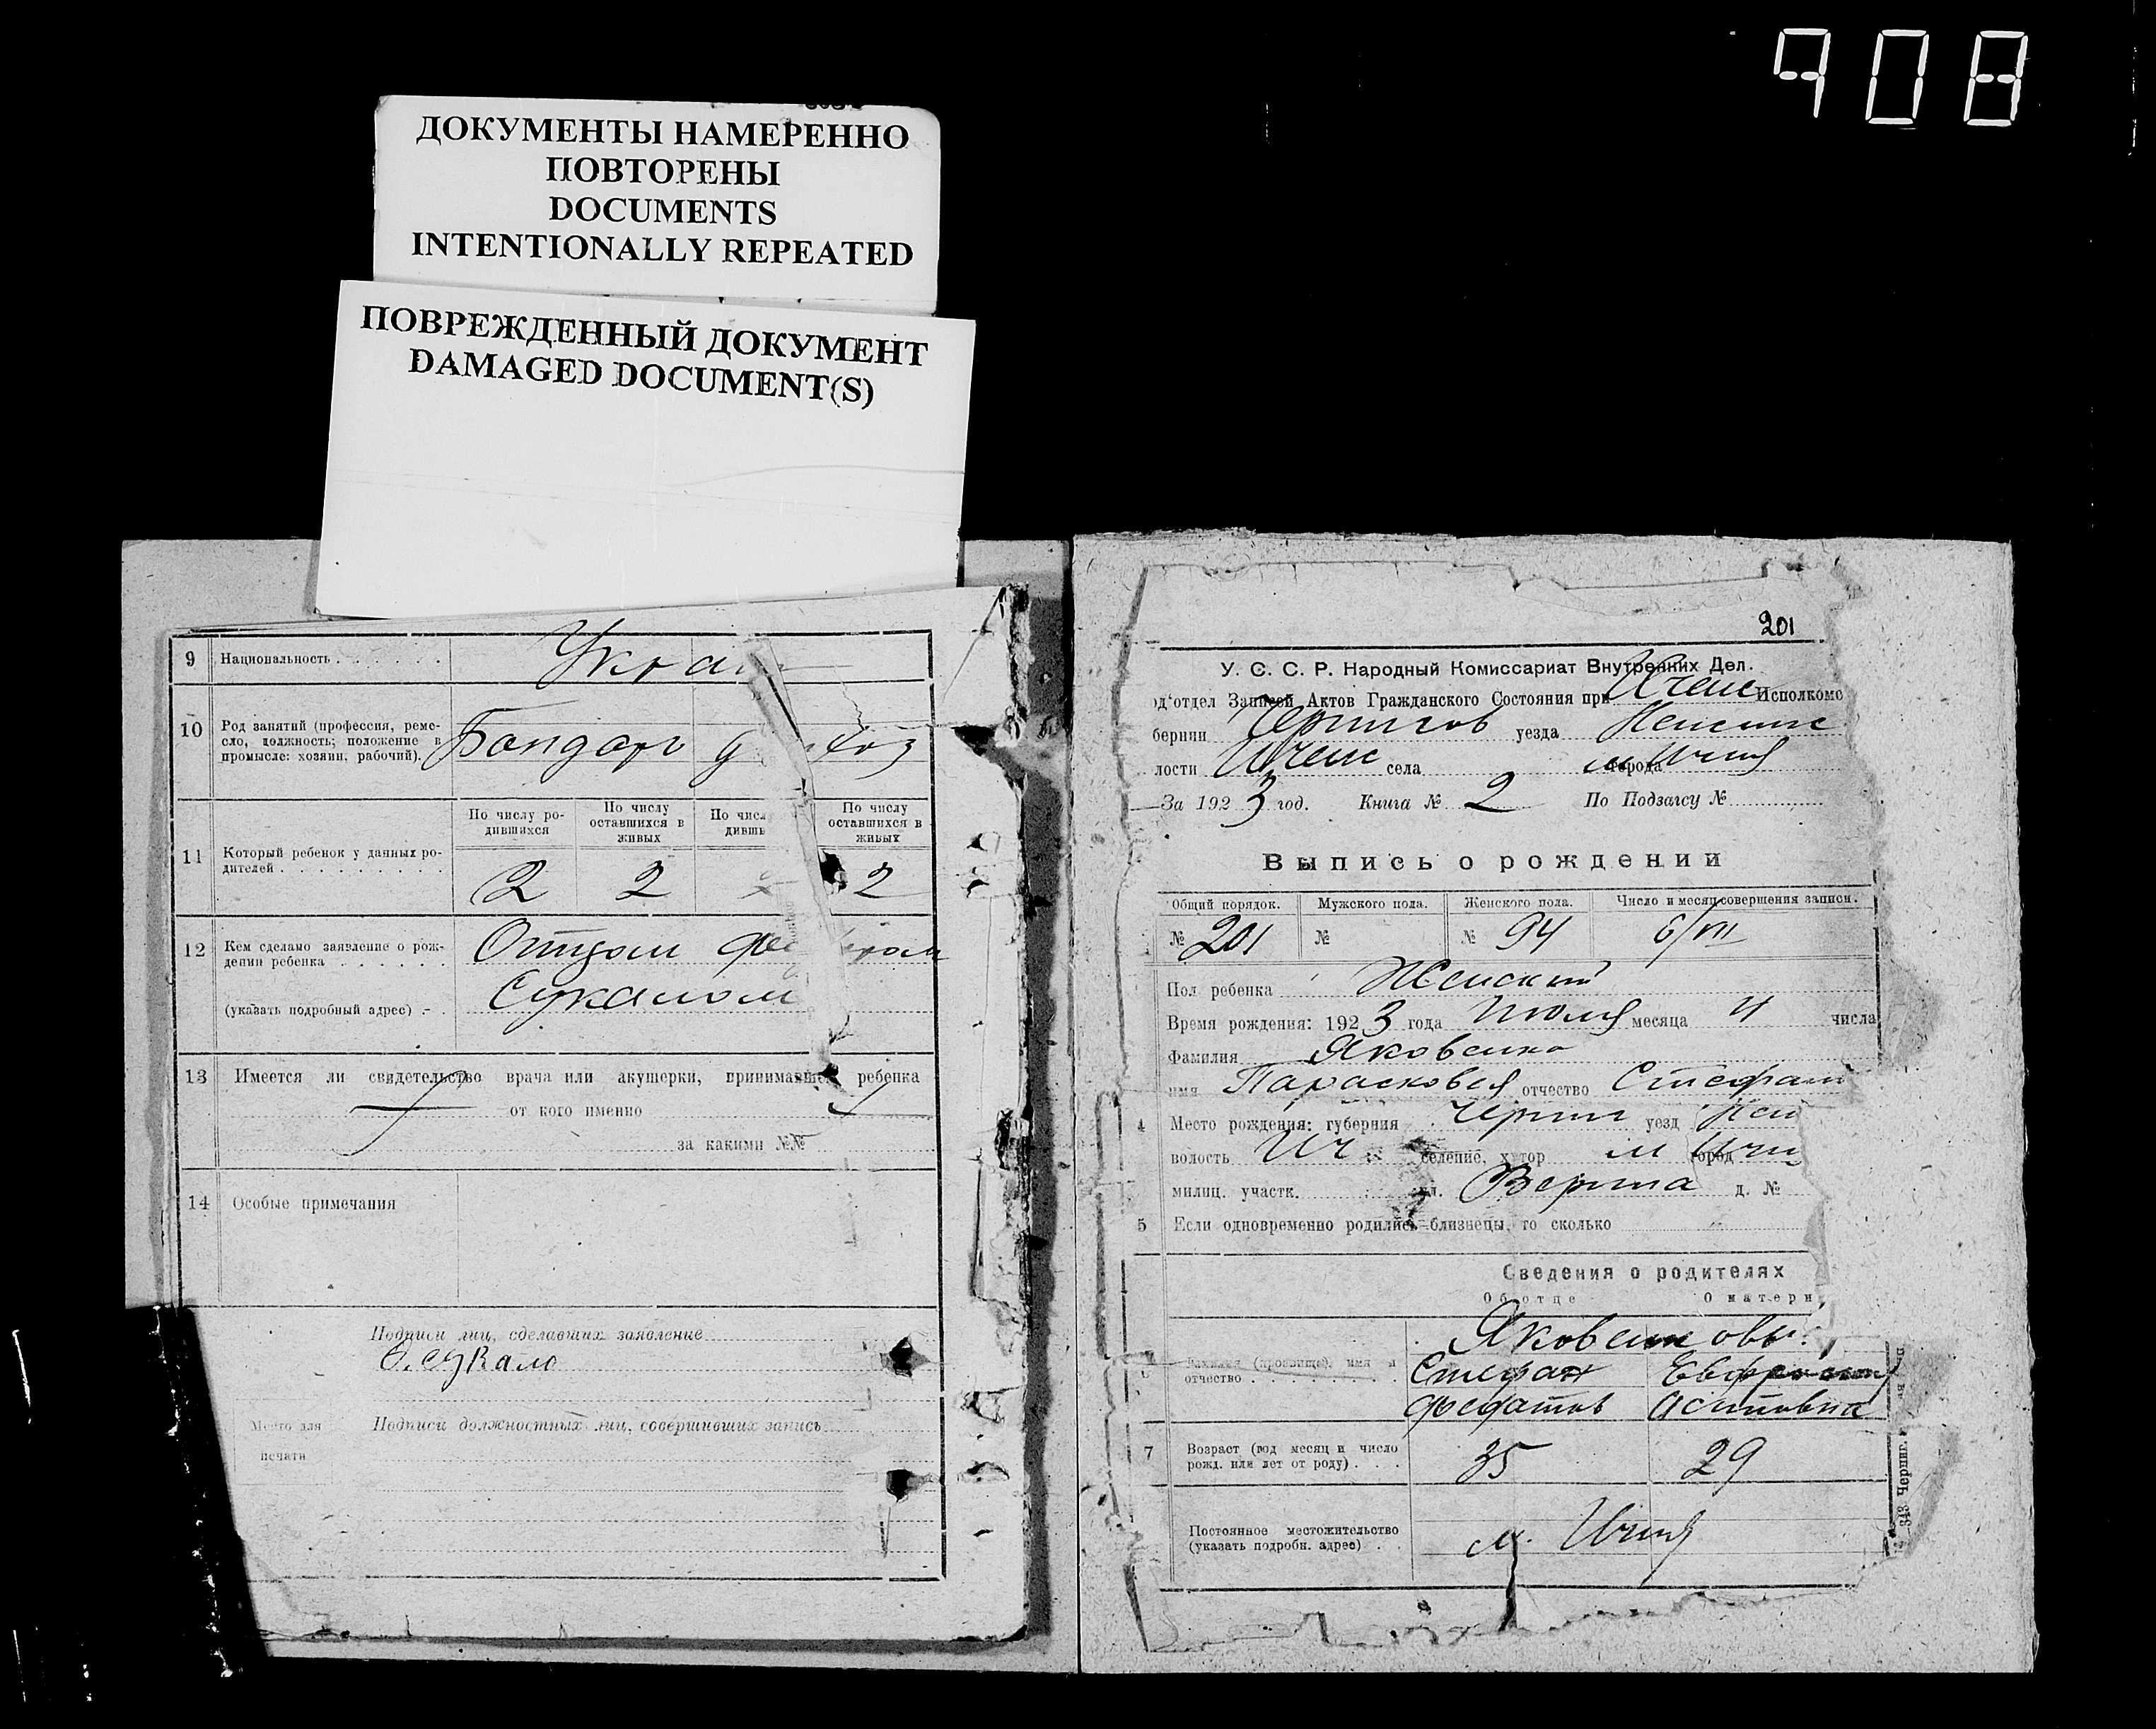 908
ДОКУМЕНТЫ НАМЕРЕННО
ПОВТОРЕНЫ
DOCUMENTS
INTENTIONALLY REPEATED
ПОВРЕЖДЕННЫЙ ДОКУМЕНТ
DAMAGED DOCUMENT(S)
9 Национальность Укра
10 Род занятий (профессия, реме-
сло, должность; положение в
промысле: хозяин, рабочий). Бондарь
11 Который ребенок у данных ро-
дителей
По числу ро-
дившихся
По числу
оставшихся в
живых
По числ
дивше
По числу
оставшихся в
живых
2 2 2
12 Кем сделано заявление о рож-
дении ребенка Отцом
(указать подробный адрес) Сукалом
13 Имеется ли свидетельство врача или акушерки, принимавшей ребенка
от кого именно
за какими №№
14 Особые примечания
Подписи лиц, сделавших заявление
Сукало
Место для
печати
Подписи должностных лиц, совершивших запись
201
У. С. С. Р. Народный Комиссариат Внутренних Дел.
од'отдел Записей Актов Гражданского Состояния при Ичен Исполкомо
бернии Чернигов уезда Нежинс
лости Ичен села города м Ичня
За 1923 год. Книга № 2 По Подзагсу №
Выпись о рождении
Общий порядок. Мужского пола. Женского пола. Число и месяц совершения записи.
№ 201 № № 94 6/VII
Пол ребенка Женский
Время рождения: 1923 года Июля месяца 4 числа
Фамилия Яковенко
имя Парасковея отчество Стефан
4 Место рождения: губерния Черниг уезд Неж
волость Ич селение, хутор м город Ичн
милиц. участк. ул. д. №
5 Если одновременно родились близнецы, то сколько
Сведения о родителях
Об отце О матери
Яковенковы
Фамилия (прозвище), имя и
отчество
Стефан
Федотов
7 Возраст (год месяц и число
рожд. или лет от роду) 35 29
Постоянное местожительство
(указать подробн. адрес) м. Ичня
343 Черниг.